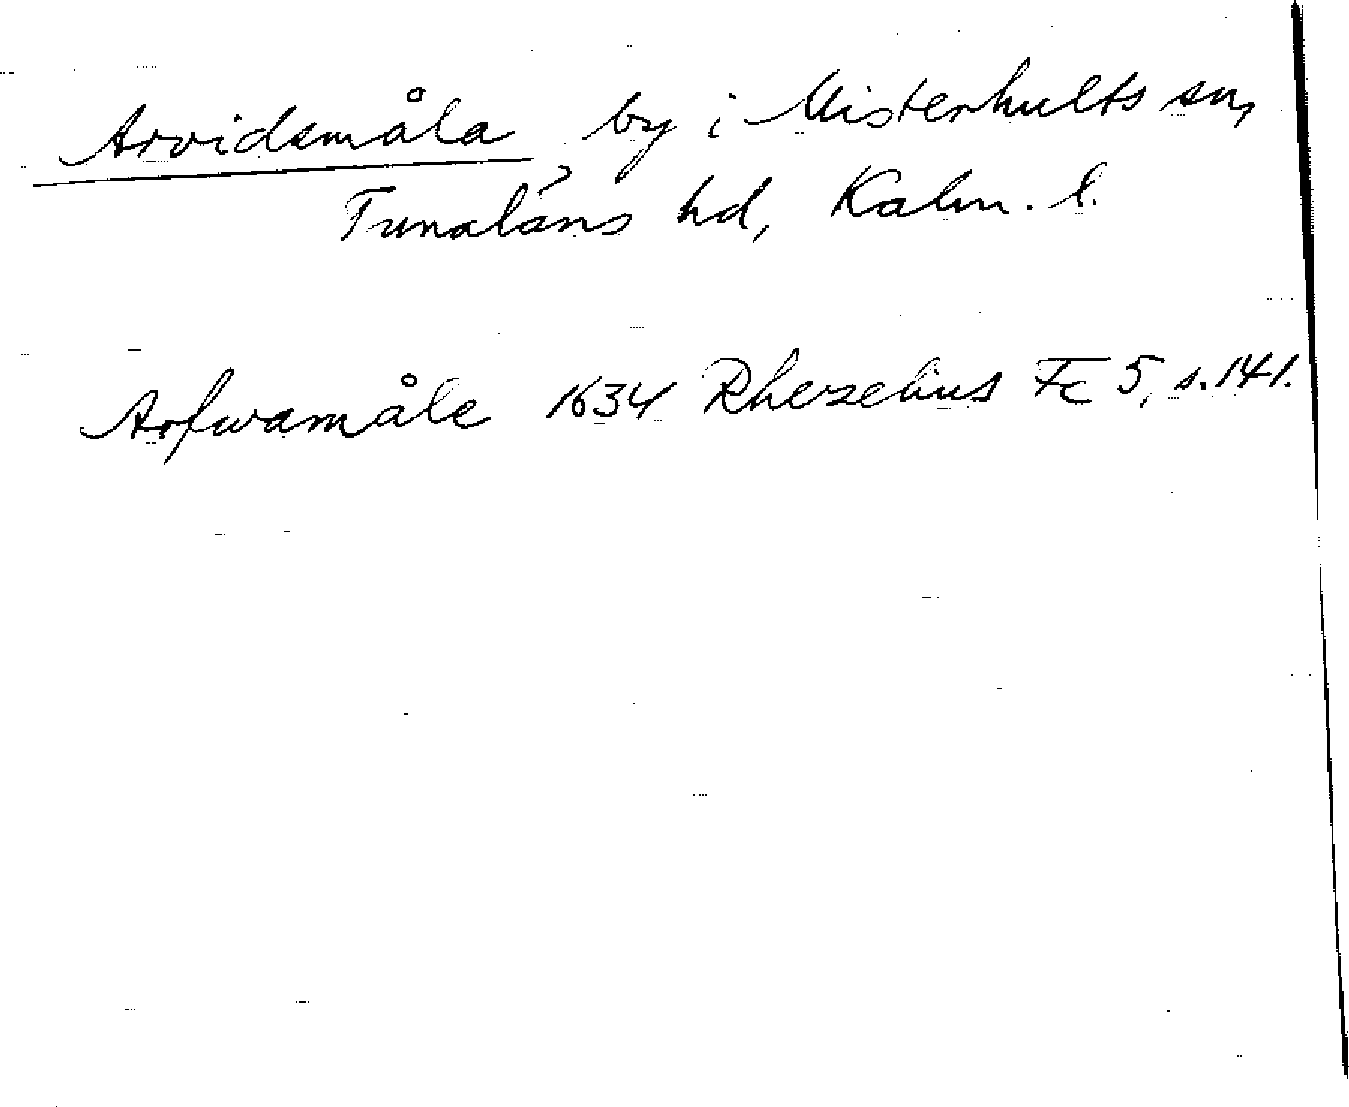 Arvidsmåla by i Misterhults sn,
Tunaläns hd, Kalm. l.
Arfwamåle 1634 Rhezelius Fc 5, s. 141.